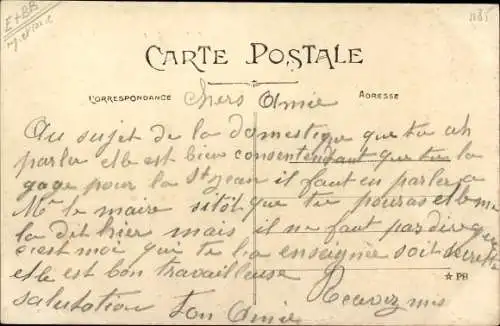 E+BB
1135
CARTE POSTALE
CORRESPONDANCE
ADRESSE
Chers Amie
Au sujet de la domestique que tu ah
parler elle est bien consentendant que tu la
gage pour la St Jean il faut en parler a
Mr le maire sitôt que tu pouras elle me
la dit hier mais il ne faut pas dire que
c'est moi qui te la enseignée soit secrette
elle est bon travailleuse
★ PB
Recevez mis
salutation Ton Amie